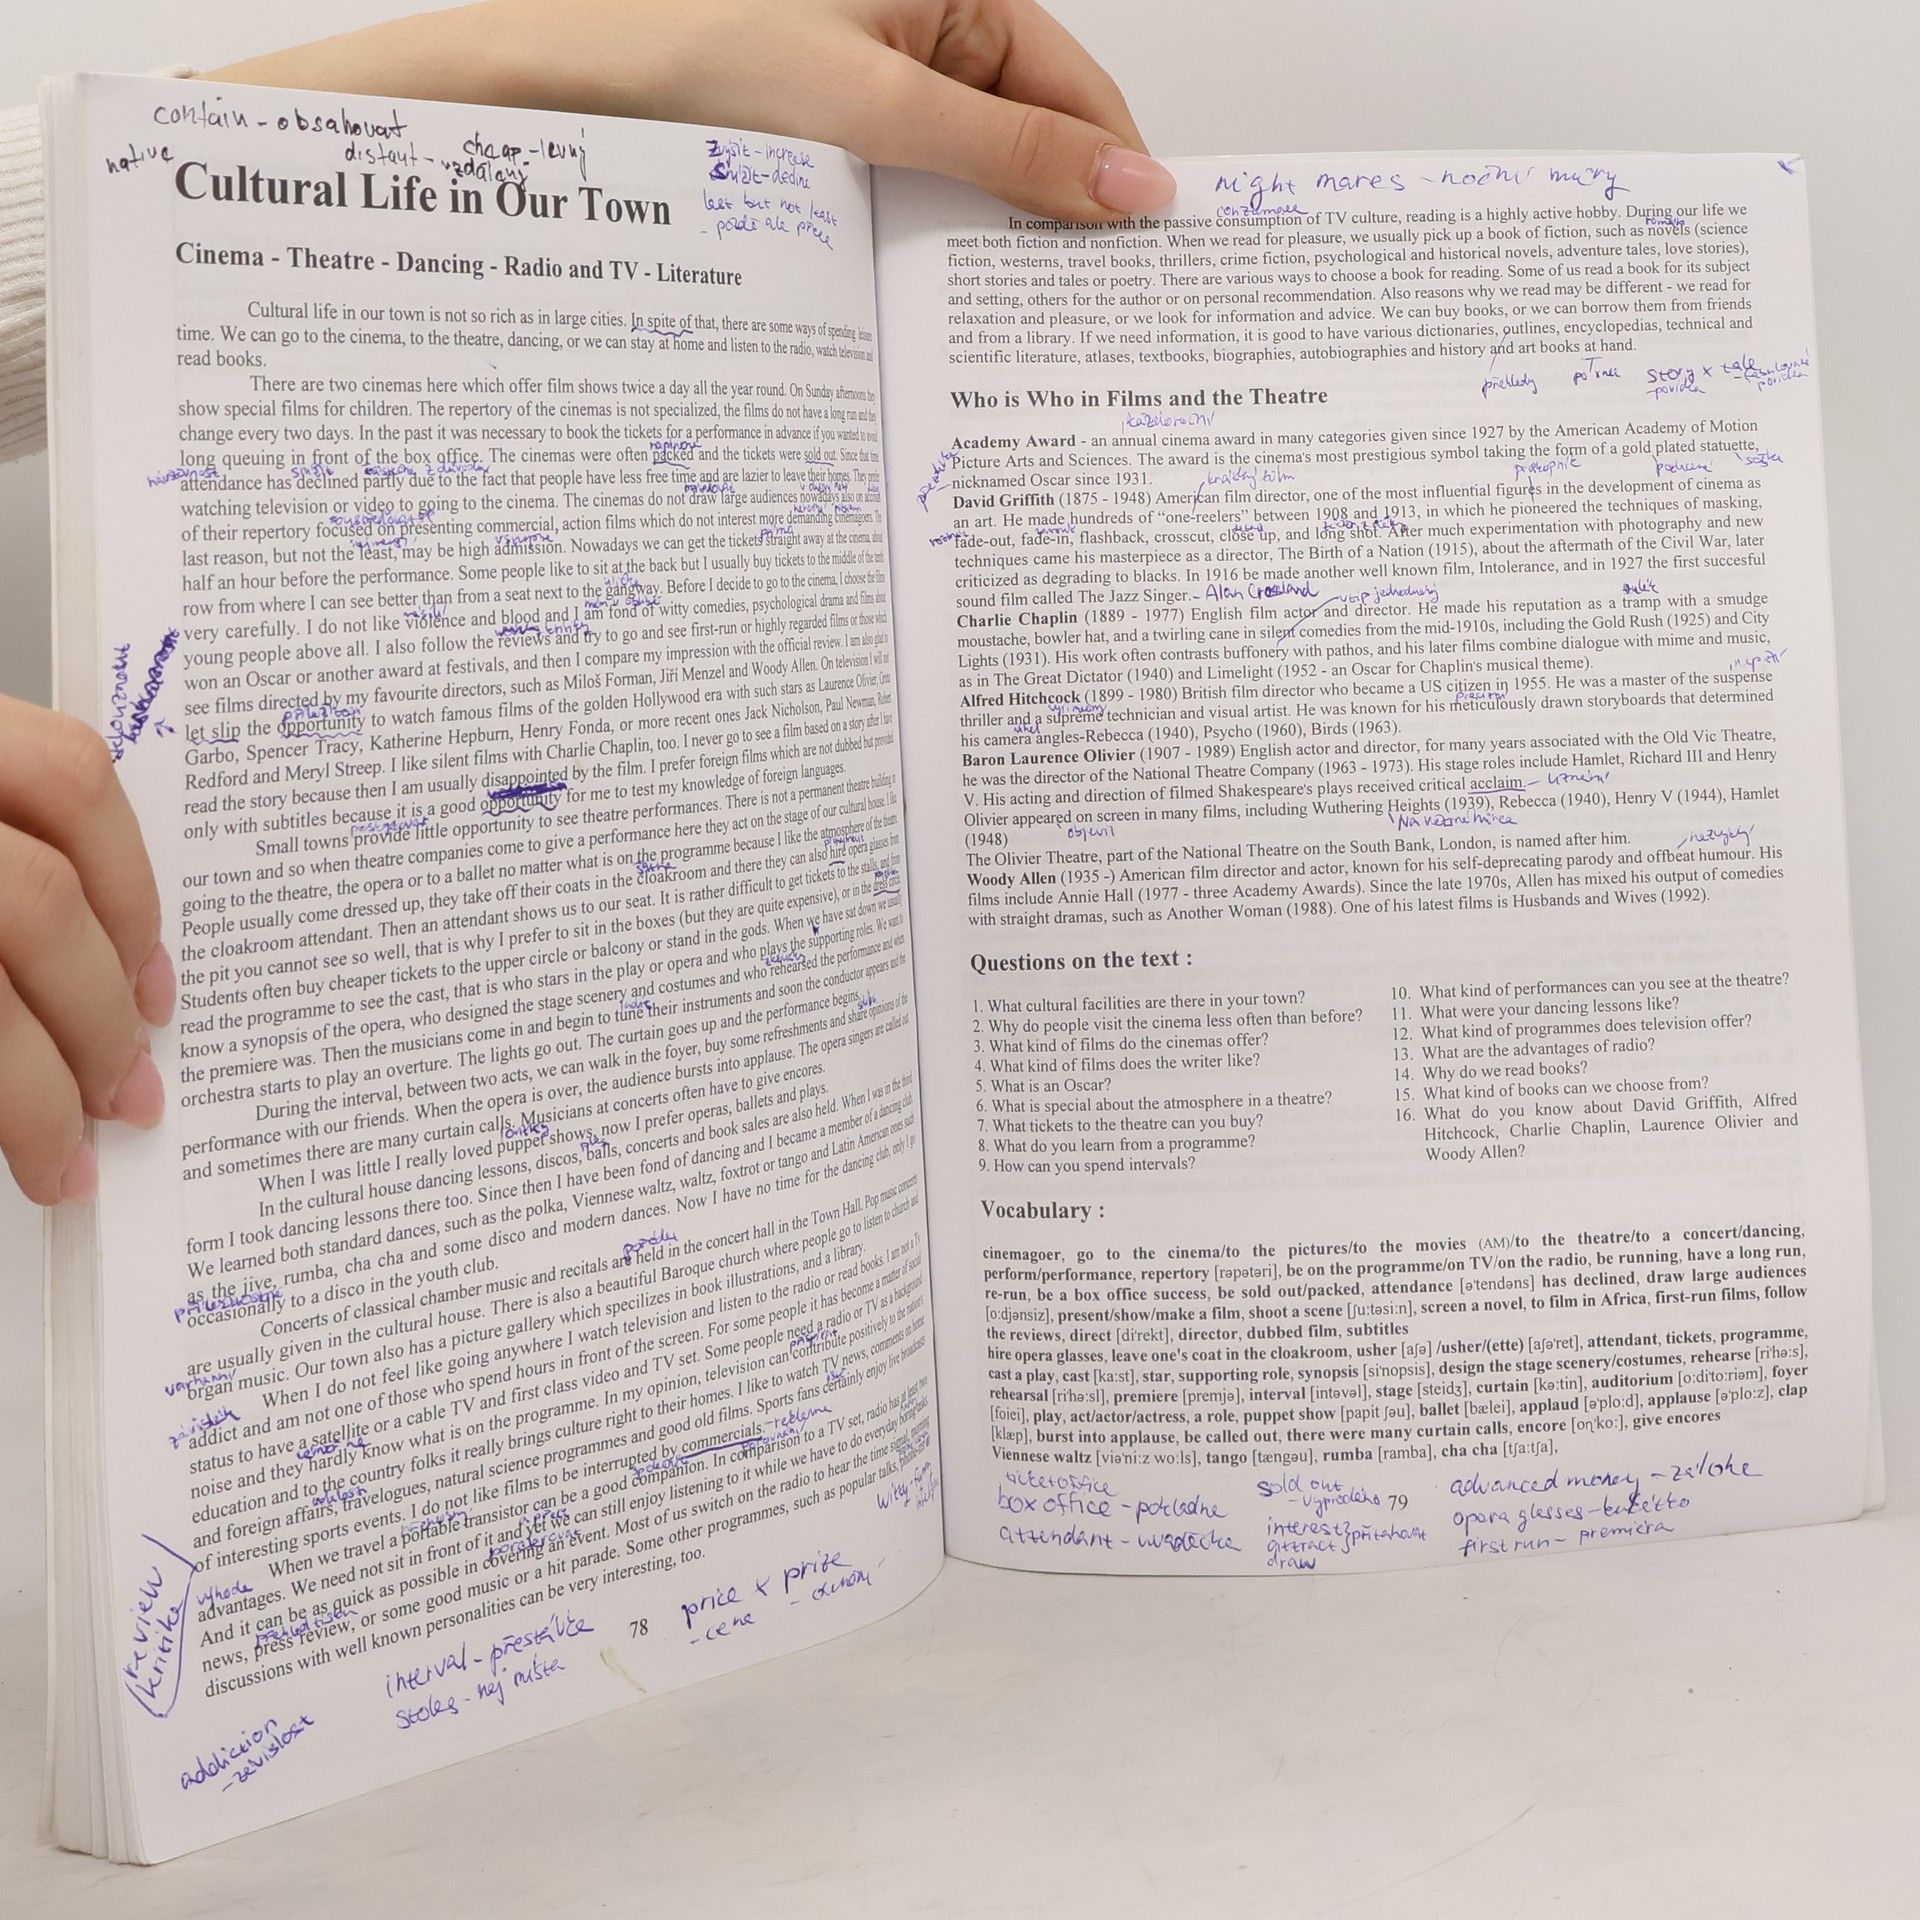 contain - obsahovat
native
distant - vzdálený
cheap - levný
zvýšit - increase
snížit - decline
last but not least
Cultural Life in Our Town
Cinema - Theatre - Dancing - Radio and TV - Literature
Cultural life in our town is not so rich as in large cities. In spite of that, there are some ways of spending leisure
time. We can go to the cinema, to the theatre, dancing, or we can stay at home and listen to the radio, watch television and
read books.
There are two cinemas here which offer film shows twice a day all the year round. On Sunday afternoons they
show special films for children. The repertory of the cinemas is not specialized, the films do not have a long run and they
change every two days. In the past it was necessary to book the tickets for a performance in advance if you wanted to avoid
long queuing in front of the box office. The cinemas were often packed and the tickets were sold out. Since that time
attendance has declined partly due to the fact that people have less free time and are lazier to leave their homes. They prefer
watching television or video to going to the cinema. The cinemas do not draw large audiences nowadays also on account
of their repertory focused on presenting commercial, action films which do not interest more demanding cinemagoers. The
last reason, but not the least, may be high admission. Nowadays we can get the tickets straight away at the cinema, about
half an hour before the performance. Some people like to sit at the back but I usually buy tickets to the middle of the tenth
row from where I can see better than from a seat next to the gangway. Before I decide to go to the cinema, I choose the film
very carefully. I do not like violence and blood and I am fond of witty comedies, psychological drama and films about
young people above all. I also follow the reviews and try to go and see first-run or highly regarded films or those which
won an Oscar or another award at festivals, and then I compare my impression with the official review. I am also glad to
see films directed by my favourite directors, such as Miloš Forman, Jiří Menzel and Woody Allen. On television I will not
let slip the opportunity to watch famous films of the golden Hollywood era with such stars as Laurence Olivier, Greta
Garbo, Spencer Tracy, Katherine Hepburn, Henry Fonda, or more recent ones Jack Nicholson, Paul Newman, Robert
Redford and Meryl Streep. I like silent films with Charlie Chaplin, too. I never go to see a film based on a story after I have
read the story because then I am usually disappointed by the film. I prefer foreign films which are not dubbed but provided
only with subtitles because it is a good opportunity for me to test my knowledge of foreign languages.
Small towns provide little opportunity to see theatre performances. There is not a permanent theatre building in
our town and so when theatre companies come to give a performance here they act on the stage of our cultural house. I like
going to the theatre, the opera or to a ballet no matter what is on the programme because I like the atmosphere of the theatre.
People usually come dressed up, they take off their coats in the cloakroom and there they can also hire opera glasses from
the cloakroom attendant. Then an attendant shows us to our seat. It is rather difficult to get tickets to the stalls, and from
the pit you cannot see so well, that is why I prefer to sit in the boxes (but they are quite expensive), or in the dress circle.
Students often buy cheaper tickets to the upper circle or balcony or stand in the gods. When we have sat down we usually
read the programme to see the cast, that is who stars in the play or opera and who plays the supporting roles. We want to
know a synopsis of the opera, who designed the stage scenery and costumes and who rehearsed the performance and when
the premiere was. Then the musicians come in and begin to tune their instruments and soon the conductor appears and the
orchestra starts to play an overture. The lights go out. The curtain goes up and the performance begins.
During the interval, between two acts, we can walk in the foyer, buy some refreshments and share opinions of the
performance with our friends. When the opera is over, the audience bursts into applause. The opera singers are called out
and sometimes there are many curtain calls. Musicians at concerts often have to give encores.
When I was little I really loved puppet shows, now I prefer operas, ballets and plays.
In the cultural house dancing lessons, discos, balls, concerts and book sales are also held. When I was in the third
form I took dancing lessons there too. Since then I have been fond of dancing and I became a member of a dancing club.
We learned both standard dances, such as the polka, Viennese waltz, waltz, foxtrot or tango and Latin American ones such
as the jive, rumba, cha cha and some disco and modern dances. Now I have no time for the dancing club, only I go
occasionally to a disco in the youth club.
Concerts of classical chamber music and recitals are held in the concert hall in the Town Hall. Pop music concerts
are usually given in the cultural house. There is also a beautiful Baroque church where people go to listen to church and
organ music. Our town also has a picture gallery which specilizes in book illustrations, and a library.
When I do not feel like going anywhere I watch television and listen to the radio or read books. I am not a TV
addict and am not one of those who spend hours in front of the screen. For some people it has become a matter of social
status to have a satellite or a cable TV and first class video and TV set. Some people need a radio or TV as a background
noise and they hardly know what is on the programme. In my opinion, television can contribute positively to the
education and to the country folks it really brings culture right to their homes. I like to watch TV news, comments on home
and foreign affairs, travelogues, natural science programmes and good old films. Sports fans certainly enjoy live broadcasts
of interesting sports events. I do not like films to be interrupted by commercials. - reklama
When we travel a portable transistor can be a good companion. In comparison to a TV set, radio has at least two
advantages. We need not sit in front of it and yet we can still enjoy listening to it while we have to do everyday boring tasks.
And it can be as quick as possible in covering an event. Most of us switch on the radio to hear the time signal, morning
news, press review, or some good music or a hit parade. Some other programmes, such as popular talks,
discussions with well known personalities can be very interesting, too.
review
kritika
addiction
- závislost
interval - přestávka
78
price x prize
- cena
night mares - noční můry
In comparison with the passive consumption of TV culture, reading is a highly active hobby. During our life we
meet both fiction and nonfiction. When we read for pleasure, we usually pick up a book of fiction, such as novels (science
fiction, westerns, travel books, thrillers, crime fiction, psychological and historical novels, adventure tales, love stories),
short stories and tales or poetry. There are various ways to choose a book for reading. Some of us read a book for its subject
and setting, others for the author or on personal recommendation. Also reasons why we read may be different - we read for
relaxation and pleasure, or we look for information and advice. We can buy books, or we can borrow them from friends
and from a library. If we need information, it is good to have various dictionaries, outlines, encyclopedias, technical and
scientific literature, atlases, textbooks, biographies, autobiographies and history and art books at hand.
přehledy
story x tale
- povídka
Who is Who in Films and the Theatre
každoroční
Academy Award - an annual cinema award in many categories given since 1927 by the American Academy of Motion
Picture Arts and Sciences. The award is the cinema's most prestigious symbol taking the form of a gold plated statuette,
nicknamed Oscar since 1931.
David Griffith (1875 - 1948) American film director, one of the most influential figures in the development of cinema as
an art. He made hundreds of "one-reelers" between 1908 and 1913, in which he pioneered the techniques of masking,
fade-out, fade-in, flashback, crosscut, close up, and long shot. After much experimentation with photography and new
techniques came his masterpiece as a director, The Birth of a Nation (1915), about the aftermath of the Civil War, later
criticized as degrading to blacks. In 1916 be made another well known film, Intolerance, and in 1927 the first succesful
sound film called The Jazz Singer. - Alan Crosland
Charlie Chaplin (1889 - 1977) English film actor and director. He made his reputation as a tramp with a smudge
moustache, bowler hat, and a twirling cane in silent comedies from the mid-1910s, including the Gold Rush (1925) and City
Lights (1931). His work often contrasts buffonery with pathos, and his later films combine dialogue with mime and music,
as in The Great Dictator (1940) and Limelight (1952 - an Oscar for Chaplin's musical theme).
Alfred Hitchcock (1899 - 1980) British film director who became a US citizen in 1955. He was a master of the suspense
thriller and a supreme technician and visual artist. He was known for his meticulously drawn storyboards that determined
his camera angles-Rebecca (1940), Psycho (1960), Birds (1963).
Baron Laurence Olivier (1907 - 1989) English actor and director, for many years associated with the Old Vic Theatre,
he was the director of the National Theatre Company (1963 - 1973). His stage roles include Hamlet, Richard III and Henry
V. His acting and direction of filmed Shakespeare's plays received critical acclaim. - uznání
Olivier appeared on screen in many films, including Wuthering Heights (1939), Rebecca (1940), Henry V (1944), Hamlet
(1948)
objevil
Na větrné hůrce
The Olivier Theatre, part of the National Theatre on the South Bank, London, is named after him.
Woody Allen (1935 -) American film director and actor, known for his self-deprecating parody and offbeat humour. His
films include Annie Hall (1977 - three Academy Awards). Since the late 1970s, Allen has mixed his output of comedies
with straight dramas, such as Another Woman (1988). One of his latest films is Husbands and Wives (1992).
Questions on the text :
1. What cultural facilities are there in your town?
2. Why do people visit the cinema less often than before?
3. What kind of films do the cinemas offer?
4. What kind of films does the writer like?
5. What is an Oscar?
6. What is special about the atmosphere in a theatre?
7. What tickets to the theatre can you buy?
8. What do you learn from a programme?
9. How can you spend intervals?
10. What kind of performances can you see at the theatre?
11. What were your dancing lessons like?
12. What kind of programmes does television offer?
13. What are the advantages of radio?
14. Why do we read books?
15. What kind of books can we choose from?
16. What do you know about David Griffith, Alfred
Hitchcock, Charlie Chaplin, Laurence Olivier and
Woody Allen?
Vocabulary :
cinemagoer, go to the cinema/to the pictures/to the movies (AM)/to the theatre/to a concert/dancing,
perform/performance, repertory [rəpətəri], be on the programme/on TV/on the radio, be running, have a long run,
re-run, be a box office success, be sold out/packed, attendance [ə'tendəns] has declined, draw large audiences
[o:djənsiz], present/show/make a film, shoot a scene [ʃu:təsi:n], screen a novel, to film in Africa, first-run films, follow
the reviews, direct [di'rekt], director, dubbed film, subtitles
hire opera glasses, leave one's coat in the cloakroom, usher [aʃə] /usher/(ette) [aʃə'ret], attendant, tickets, programme,
cast a play, cast [ka:st], star, supporting role, synopsis [si'nopsis], design the stage scenery/costumes, rehearse [ri'hə:s],
rehearsal [ri'hə:sl], premiere [premjə], interval [intəvəl], stage [steidʒ], curtain [kə:tin], auditorium [o:di'to:riəm], foyer
[foiei], play, act/actor/actress, a role, puppet show [papit ʃəu], ballet [bælei], applaud [ə'plo:d], applause [ə'plo:z], clap
[klæp], burst into applause, be called out, there were many curtain calls, encore [oŋ'ko:], give encores
Viennese waltz [viə'ni:z wo:ls], tango [tæŋgəu], rumba [ramba], cha cha [tʃa:tʃa],
ticket office
box office - pokladna
attendant - uvaděčka
sold out
- vyprodáno
79
interest
attract } přitahovat
draw
advanced money - záloha
opera glasses - kukátko
first run - premiéra